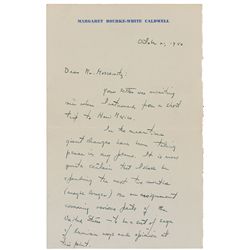 MARGARET BOURKE-WHITE CALDWELL
October 2, 1940
Dear Mr.
Your letter was waiting
me when I returned from a short
trip to New Mexico.
In the meantime
great changes have been taking
place in my plans. It is now
quite certain that I shall be
spending the next two months
(maybe longer) on an assignment
covering various parts of the
United States – to be a sort of saga
of American ways and opinion at
this point.